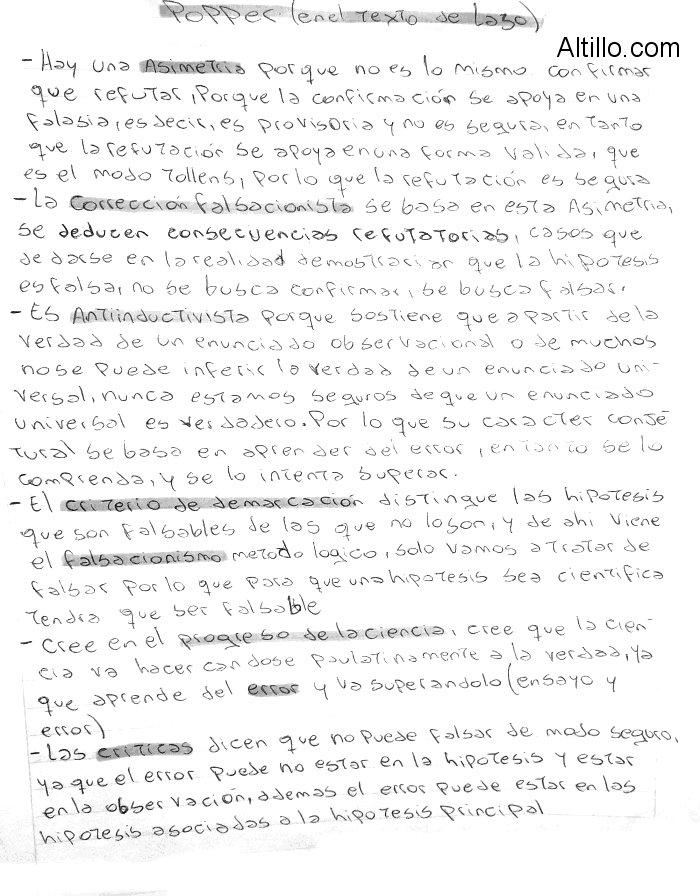 Popper (en el texto de Lazo)
Altillo.com
- Hay una Asimetria porque no es lo mismo confirmar
que refutar, Porque la confirmación se apoya en una
falasia, es decir, es provisoria y no es segura, en tanto
que la refutación se apoya en una forma valida, que
es el modo Tollens, por lo que la refutación es segura
- La Corrección falsacionista se basa en esta Asimetria,
se deducen consecuencias refutatorias, casos que
de darse en la realidad demostrarian que la hipotesis
es falsa, no se busca confirmar, se busca falsar.
- Es Antiinductivista porque sostiene que a partir de la
verdad de un enunciado observacional o de muchos
no se puede inferir la verdad de un enunciado uni-
versal, nunca estamos seguros de que un enunciado
universal es verdadero. Por lo que su caracter conje
tural se basa en aprender del error, en tanto se lo
comprenda, y se lo intenta superar.
- El criterio de demarcación distingue las hipotesis
que son falsables de las que no loson, y de ahi viene
el falsacionismo metodologico, solo vamos a tratar de
falsar por lo que para que una hipotesis sea cientifica
tendra que ser falsable
- Cree en el progreso de la ciencia, cree que la cien-
cia va hacercandose paulatinamente a la verdad, ya
que aprende del error y va superandolo (ensayo y
error)
- Las criticas dicen que no puede falsar de modo seguro,
ya que el error puede no estar en la hipotesis y estar
en la observación, ademas el error puede estar en las
hipotesis asociadas a la hipotesis principal